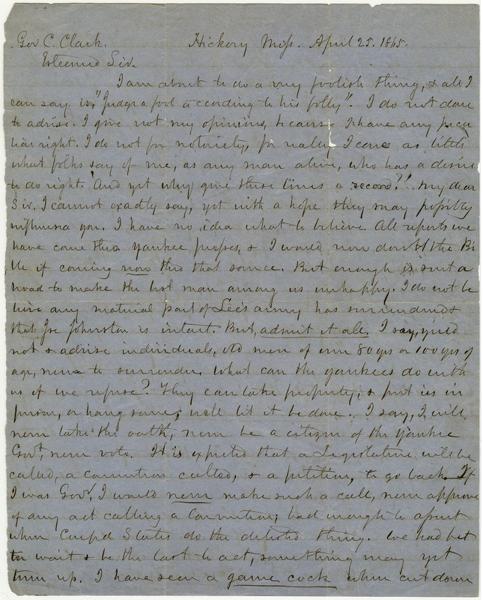 Gov C. Clark. Hickory Miss. April 25. 1865.
Esteemed Sir.
I am about to do a very foolish thing, & all I
can say is, "Judge a fool according to his folly". I do not dare
to advise. I give not my opinions, because I have any pecu
liar right. I do not for notoriety, for really I care as little
what folks say of me, as any man alive, who has a desire
to do right. And yet why give these lines a second?! My dear
Sir. I cannot exactly say, yet with a hope they may possibly
influence you. I have no idea what to believe. All reports we
have come thro Yankee papers, & I would now doubt the Bi
ble if coming now thro that source. But enough is sent a
road to make the best man among us unhappy. I do not be
lieve any material part of Lee's army has surrendered
that Joe Johnston is intact. But, admit it all, I say, yield
not & advise individuals, old men of even 80 yrs or 100 yrs of
age, never to surrender. What can the yankees do with
us if we refuse? They can take property, & put us in
prison, or hang some, well let it be done. I say, I will
never take the oath, never be a citizen of the Yankee
Govt, never vote. It is expected that a Legislature will be
called, a convention called, & a petition, to go back. If
I was Govr, I would never make such a call, never approve
of any act calling a Convention; bad enough to assert
when Conf'd States do the detested thing. We had bet
to wait & be the last to act, something may yet
turn up. I have seen a game cock when cut down